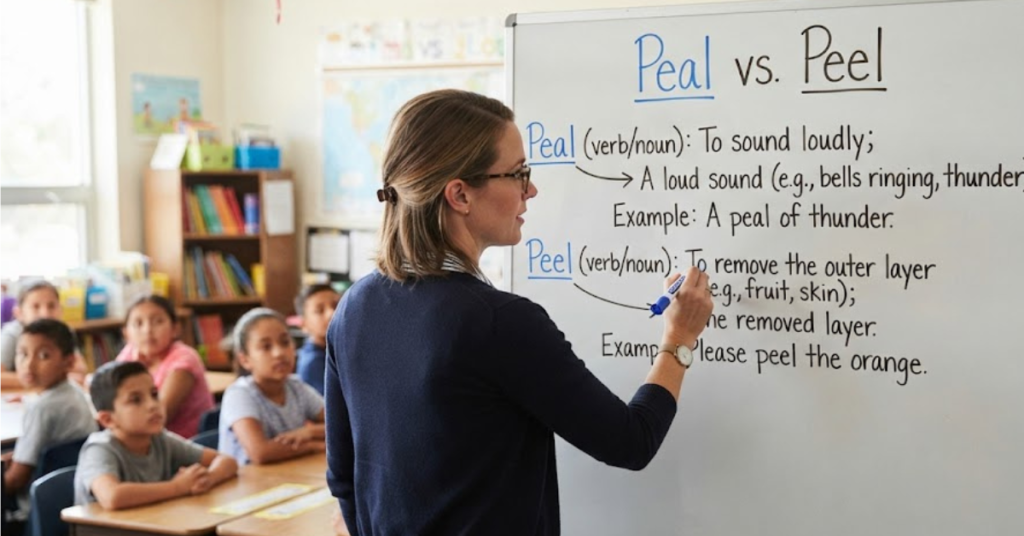 Peal vs. Peel
Peal (verb/noun): To sound loudly;
A loud sound (e.g., bells ringing, thunder
Example: A peal of thunder.
Peel (verb/noun): To remove the outer layer
e.g., fruit, skin);
removed layer.
Please peel the orange.